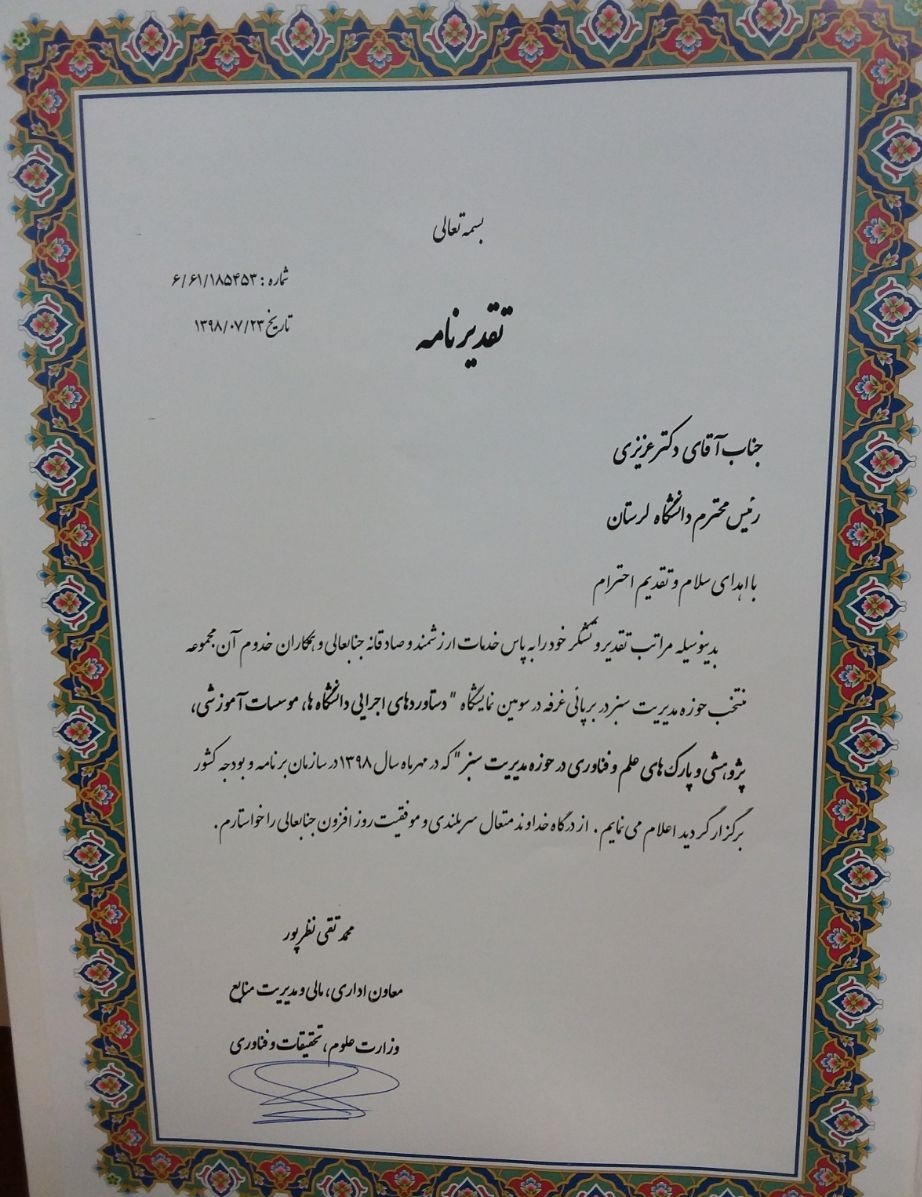 بسمه تعالی
شماره : ۶/۶۱/۱۸۵۴۵۳
تاریخ ۱۳۹۸/۰۷/۲۳
تقدیرنامه
جناب آقای دکتر عزیزی
رئیس محترم دانشگاه لرستان
با اهدای سلام و تقدیم احترام
بدینوسیله مراتب تقدیر و تشکر خود را به پاس خدمات ارزشمند و صادقانه جنابعالی و همکاران خدوم آن مجموعه
منتخب حوزه مدیریت سبز در برپائی غرفه در سومین نمایشگاه " دستاوردهای اجرایی دانشگاه ها، موسسات آموزشی،
پژوهشی و پارک های علم و فناوری در حوزه مدیریت سبز" که در مهرماه سال ۱۳۹۸ در سازمان برنامه و بودجه کشور
برگزار گردید اعلام می نمایم . از درگاه خداوند متعال سربلندی و موفقیت روز افزون جنابعالی را خواستارم.
محمد تقی نظرپور
معاون اداری، مالی و مدیریت منابع
وزارت علوم ، تحقیقات و فناوری